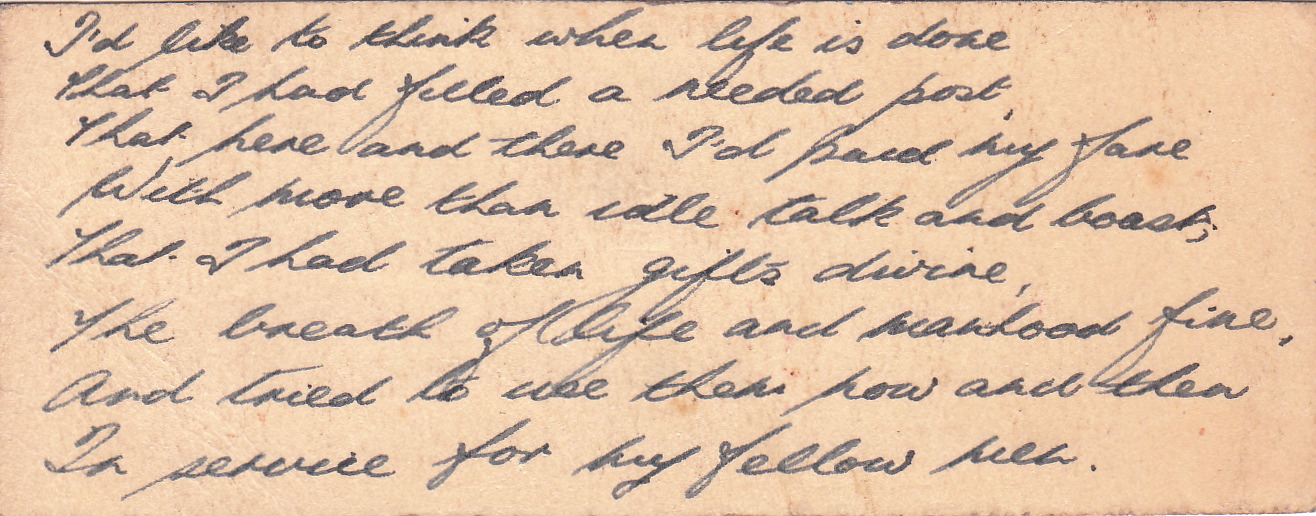 I'd like to think when life is done
That I had filled a needed post,
That here and there I'd paid my fare
With more than idle talk and boast;
That I had taken gifts divine,
The breath of life and manhood fine,
And tried to use them now and then
In service for my fellow men.